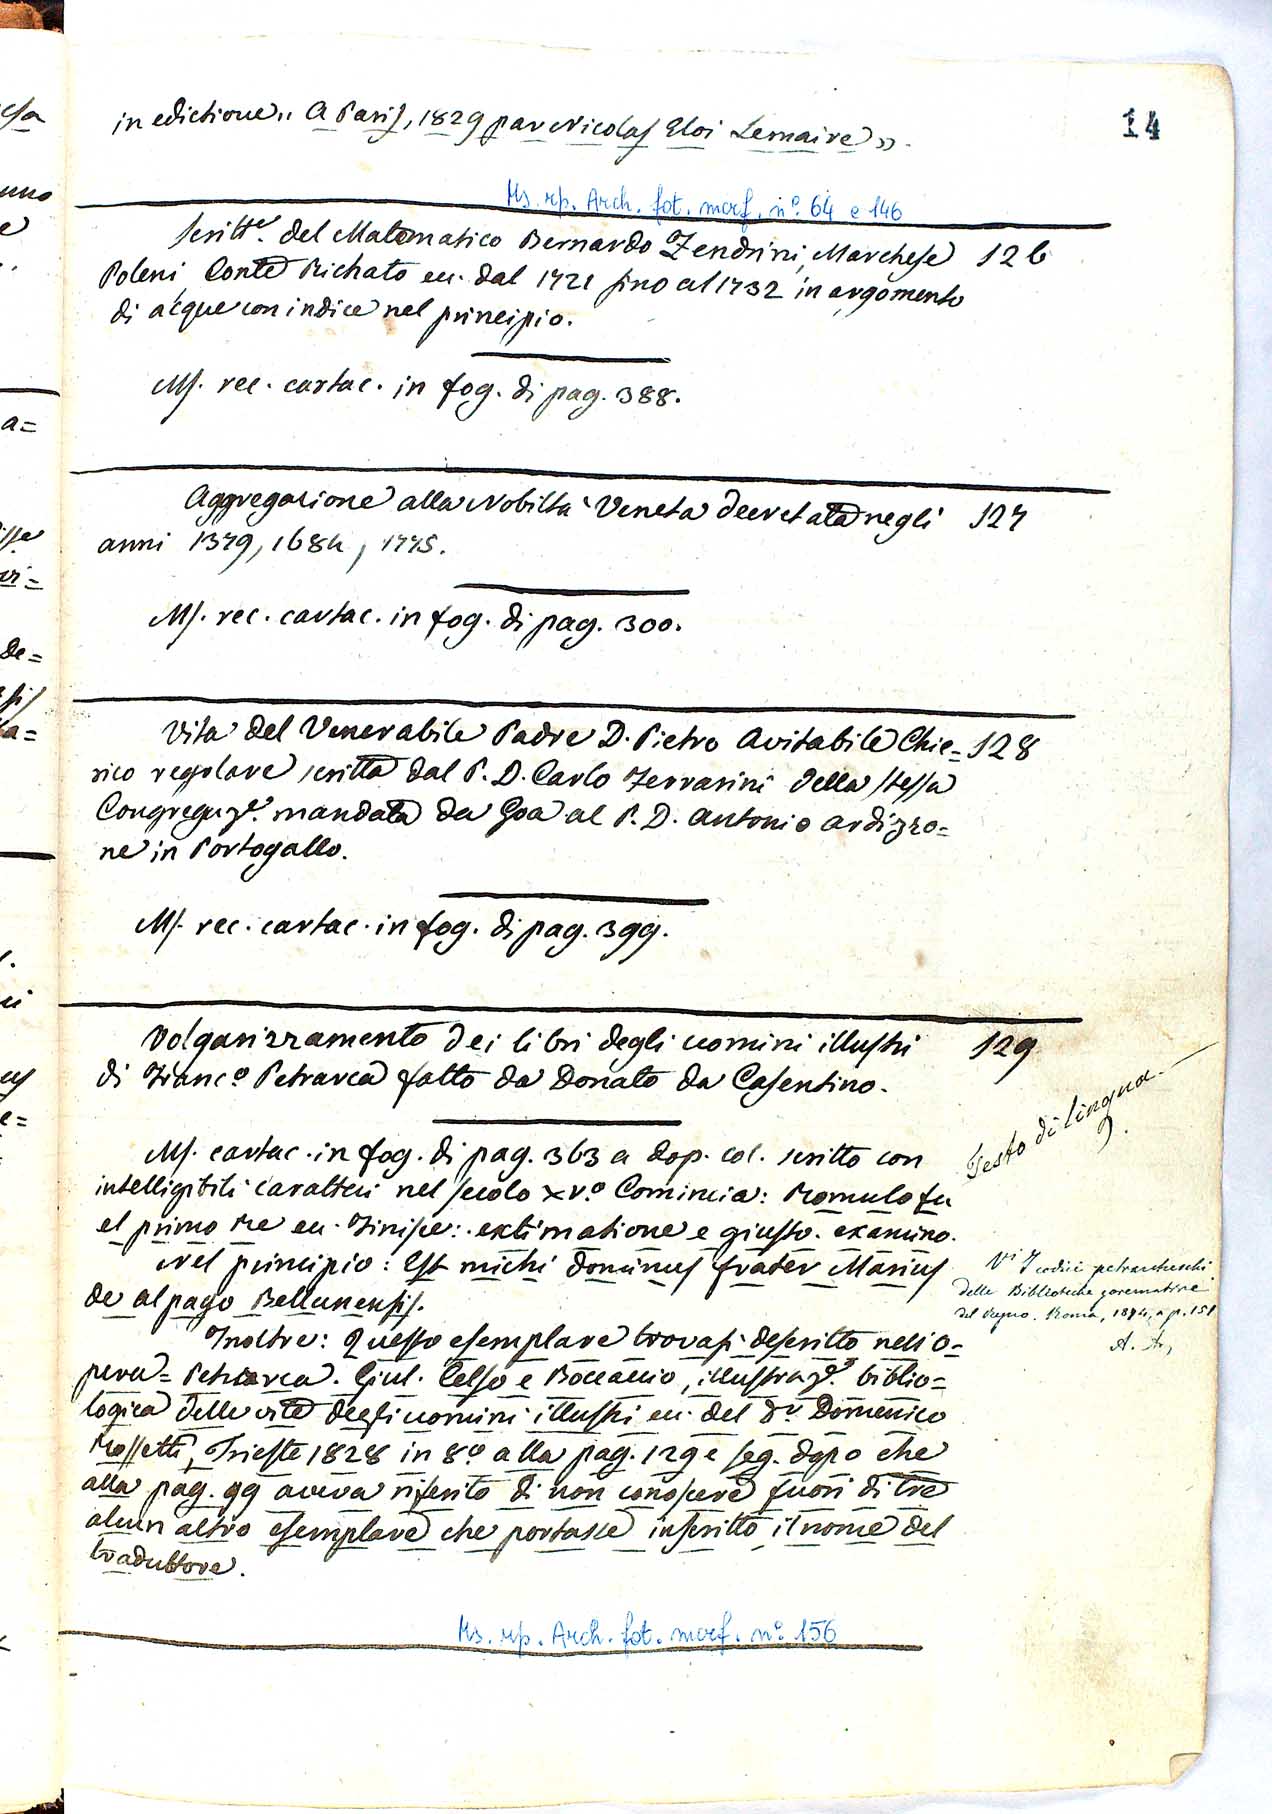 14
in edictione „ A Paris, 1829 par Nicolas Eloi Lemaire ».
Ms. rip. Arch. fot. morf. n.° 64 e 146
Scritt.e del Matematico Bernardo Zendrini, Marchese 126
Poleni, Conte Richato ec. dal 1721 sino al 1732 in argomento
di acque con indice nel principio.
Ms. rec. cartac. in fog. di pag. 388.
Aggregazione alla Nobiltà Veneta decretata negli 127
anni 1379, 1684, 1775.
Ms. rec. cartac. in fog. di pag. 300.
Vita del Venerabile Padre D. Pietro Avitabile Chie= 128
rico regolare scritta dal P. D. Carlo Ferrarini della stessa
Congregaz.e mandata da Goa al P. D. Antonio Ardizzo=
ne in Portogallo.
Ms. rec. cartac. in fog. di pag. 399.
Volgarizzamento dei libri degli uomini illustri 129
di Franc.o Petrarca fatto da Donato da Casentino.
Testo di lingua.
Ms. cartac. in fog. di pag. 363 a dop. col. scritto con
intelligibili caratteri nel secolo XV.o Comincia: Romulo fu
el primo Re ec. Finisce: extimatione e giusto examino.
Nel principio: Est michi dominus frater Marius
de alpago Bellunensis.
V.i I codici petrarcheschi
delle Biblioteche governative
del Regno. Roma, 1874, a p. 151
A. A.
Inoltre: Questo esemplare trovasi descritto nell'o=
pera = Petrarca. Giul. Celso e Boccaccio, illustraz.e biblio=
logica delle vite degli uomini illustri ec. del D.r Domenico
Rossetti, Trieste 1828 in 8.o alla pag. 129 e seg. dopo che
alla pag. 99 aveva riferito di non conoscere fuori di tre
alcun altro esemplare che portasse inscritto il nome del
traduttore.
Ms. rip. Arch. fot. morf. n.° 156